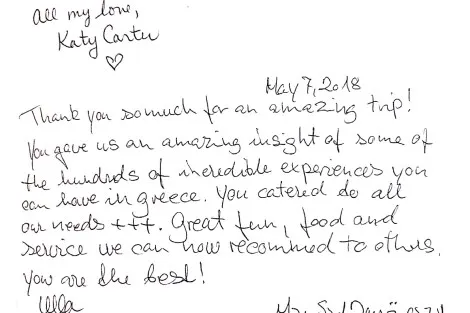 all my love,
Katy Carter
May 7, 2018
Thank you so much for an amazing trip!
You gave us an amazing insight of some of
the hundreds of incredible experiences you
can have in greece. You catered do all
our needs +++. Great fun, food and
service we can now recommed to others.
You are the best!
Ulla